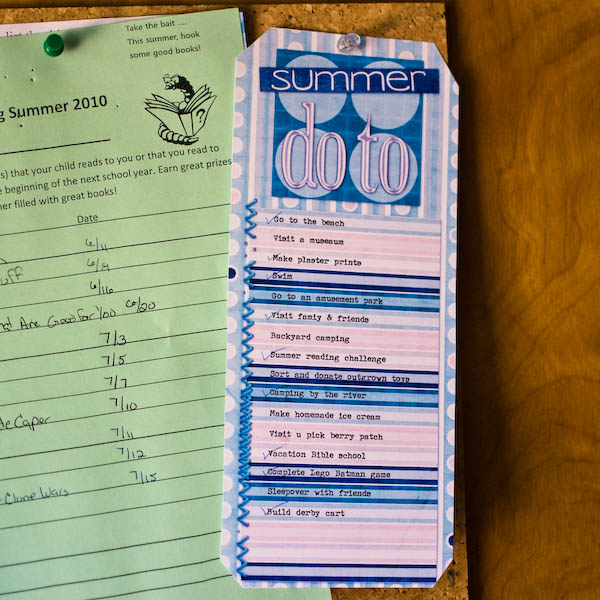 Take the bait ....
This summer, hook
some good books!
g Summer 2010
?
s) that your child reads to you or that you read to
e beginning of the next school year. Earn great prizes
ner filled with great books!
Date
6/11
uff 6/14
6/16
hat Are Good for You 6/20
7/3
7/5
7/7
7/10
le Caper
7/11
7/12
7/15
Clone Wars
summer
do to
Go to the beach
Visit a museaum
Make plaster prints
Swim
Go to an amusement park
Visit famiy & friends
Backyard camping
Summer reading challenge
Sort and donate outgrown toys
Camping by the river
Make homemade ice cream
Visit u pick berry patch
Vacation Bible school
Complete Lego Batman game
Sleepover with friends
Build derby cart